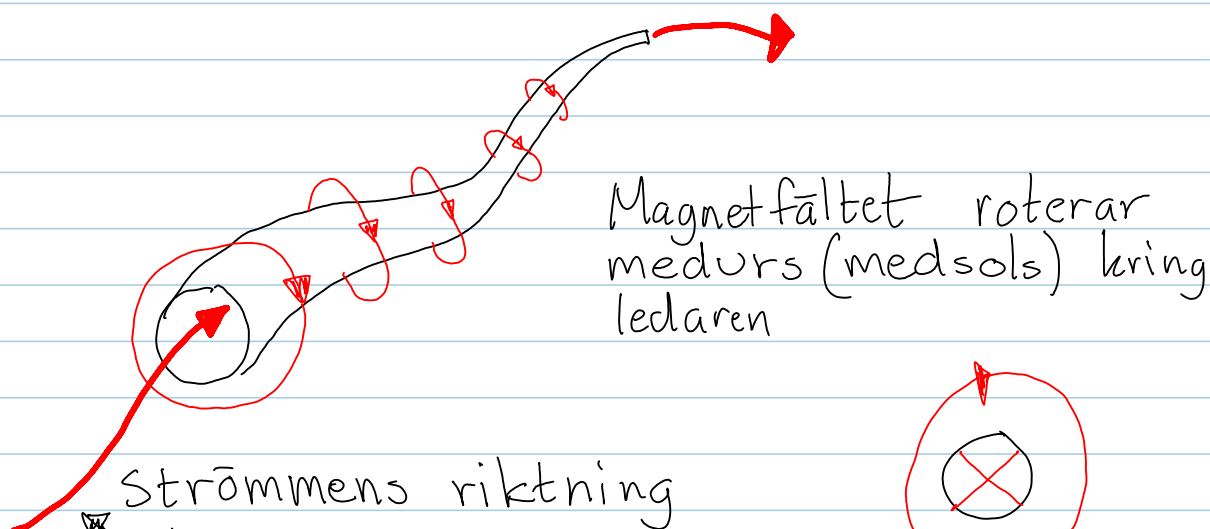 Magnetfältet roterar
medurs (medsols) kring
ledaren
Strömmens riktning